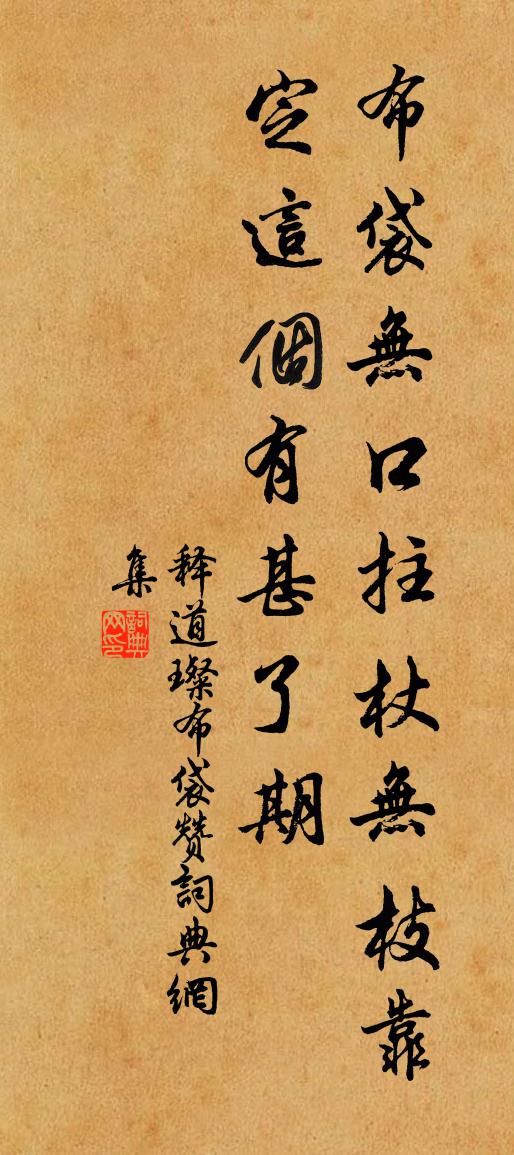 布袋無口拄杖無枝靠
定這個有甚了期
释道璨布袋赞詞典網
集
詞典
网印